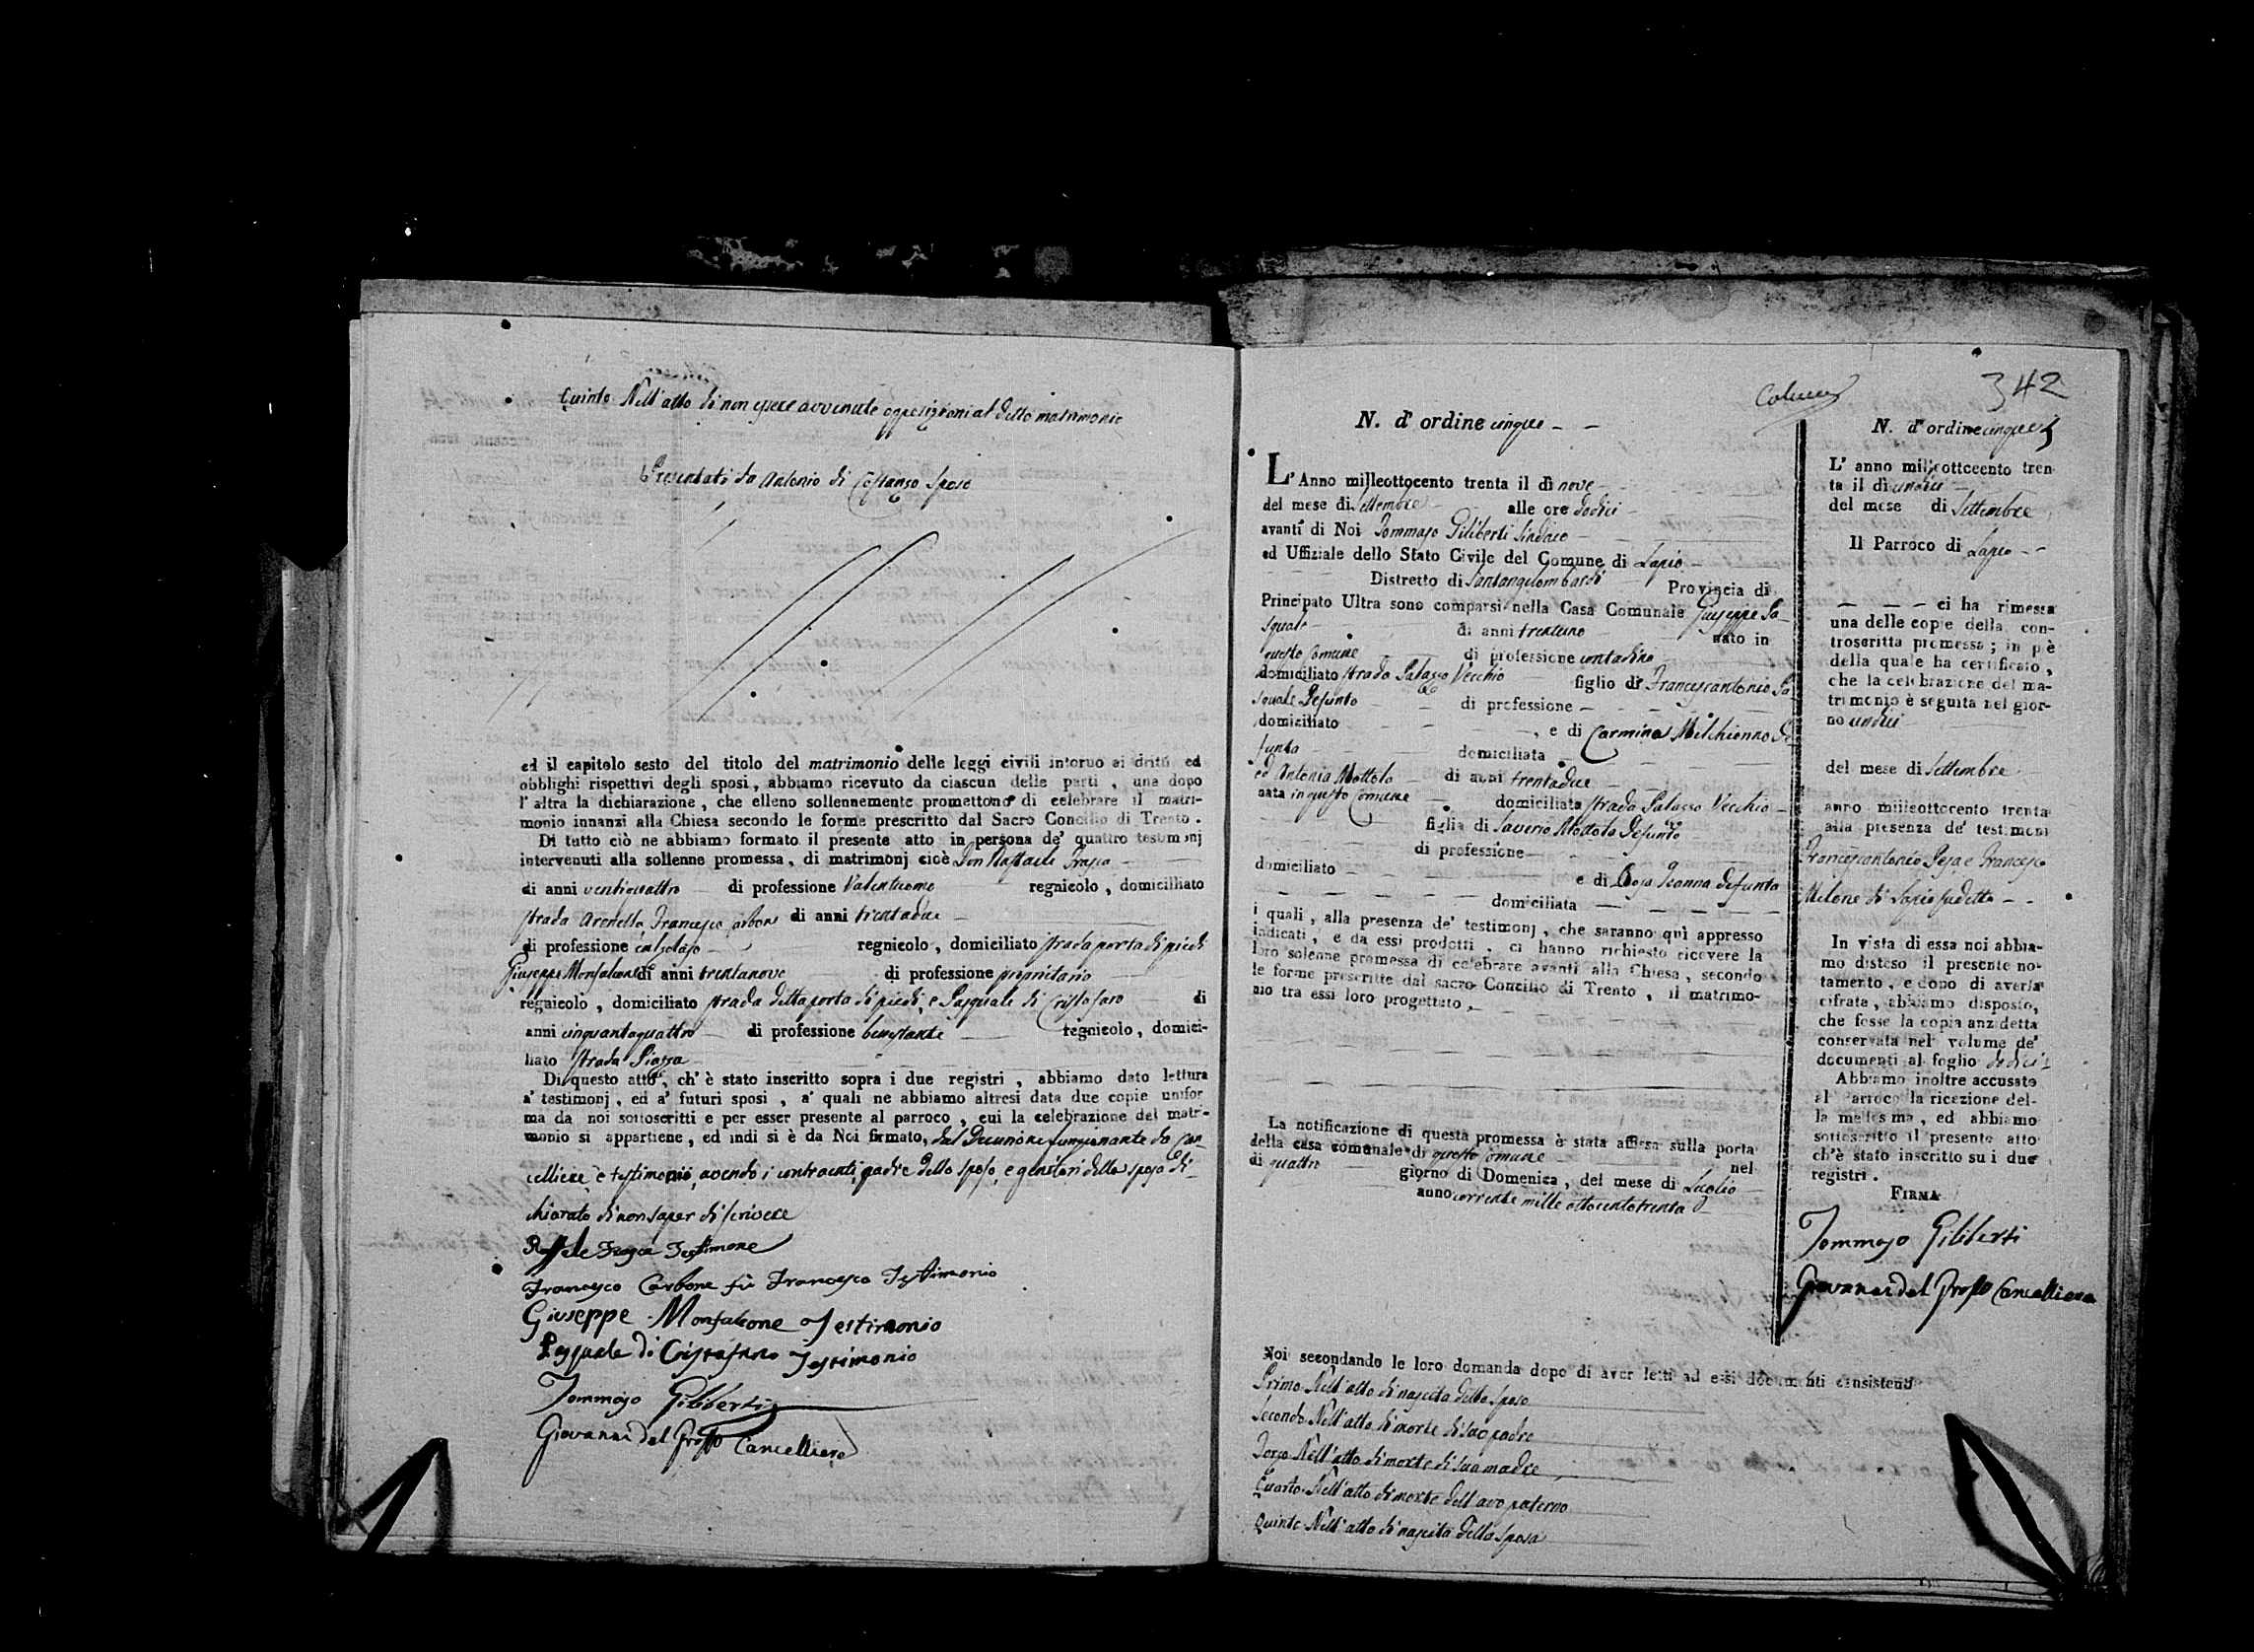 Quinto Nell'atto di non essere avvenute opposizioni al detto matrimonio
Presentati da Antonio di Costanzo Sposo
ed il capitolo sesto del titolo del matrimonio delle leggi civili intorno ai dritti ed
obblighi rispettivi degli sposi, abbiamo ricevuto da ciascun delle parti, una dopo
l'altra la dichiarazione, che elleno sollennemente promettono di celebrare il matri-
monio innanzi alla Chiesa secondo le forme prescritto dal Sacro Concilio di Trento.
Di tutto ciò ne abbiamo formato il presente atto in persona de' quattro testimonj
intervenuti alla sollenne promessa, di matrimonj cioè Don Raffaele Frasca
di anni ventiquattro di professione Galantuomo regnicolo, domicilliato
strada Arenella Francesco Carbone di anni trentadue
di professione calzolajo regnicolo, domiciliato strada porta di piedi
Giuseppe Monfalcone di anni trentanove di professione proprietario
regnicolo, domiciliato strada detta porta di piedi, e Pasquale di Cristofaro di
anni cinquantaquattro di professione benestante regnicolo, domici-
liato strada Piazza
Di questo atto, ch'è stato inscritto sopra i due registri, abbiamo dato lettura
a' testimonj, ed a' futuri sposi, a' quali ne abbiamo altresì data due copie unifor
ma da noi sottoscritti e per esser presente al parroco, cui la celebrazione del matri-
monio si appartiene, ed indi si è da Noi firmato, dal Decurione funzionante da Can-
celliere e testimonii, avendo i contraenti, padre dello sposo, e genitori della sposa di-
chiarato di non saper di scrivere
Raffaele Frasca Testimone
Francesco Carbone fù Francesco Testimonio
Giuseppe Monfalcone Testimonio
Pasquale di Cristofaro Testimonio
Tommaso Giliberti
Giovanni del Grosso Cancelliere
342
N. d'ordine cinque
L'Anno milleottocento trenta il dì nove
del mese di Settembre alle ore dodici
avanti di Noi Tommaso Giliberti Sindaco
ed Uffiziale dello Stato Civile del Comune di Lapio
Distretto di Santangelombardi Provincia di
Principato Ultra sono comparsi nella Casa Comunale Giuseppe Pa-
squale di anni trentuno nato in
questo Comune di professione contadino
domiciliato strada Palazzo Vecchio figlio di Francescantonio Pa
squale Defunto di professione
domiciliato , e di Carmina Melchionno De-
funta domiciliata
ed Antonia Mottola di anni trentadue
nata in questo Comune domiciliata strada Palazzo Vecchio
figlia di Saverio Mottola Defunto
di professione
domiciliato e di Rosa Ieanna defunta
domiciliata
i quali, alla presenza de' testimonj, che saranno quì appresso
indicati, e da essi prodotti, ci hanno richiesto ricevere la
loro solenne promessa di celebrare avanti alla Chiesa, secondo
le forme prescritte dal sacro Concilio di Trento, il matrimo-
nio tra essi loro progettato,
La notificazione di questa promessa è stata affissa sulla porta
della casa comunale di questo Comune nel
di quattro giorno di Domenica, del mese di Luglio
anno corrente mille ottocentotrenta
Noi secondando le loro domanda dopo di aver letti ad essi documenti consistenti
Primo Nell'atto di nascita dello sposo
Secondo Nell'atto di morte di suo padre
Terzo Nell'atto di morte di sua madre
Quarto Nell'atto di morte dell'avo paterno
Quinto Nell'atto di nascita della sposa
N. d'ordine cinque 5
L'anno milleottocento tren-
ta il dì undici
del mese di Settembre
Il Parroco di Lapio
ci ha rimessa
una delle copie della con-
troscritta promessa; in piè
della quale ha certificato,
che la celebrazione del ma-
trimonio è seguita nel gior-
no undici
del mese di Settembre
anno milleottocento trenta
alla presenza de' testimoni
Francescantonio Pesa e Francesco
Milone di Lapio sudetto
In vista di essa noi abbia-
mo disteso il presente no-
tamento, e dopo di averla
cifrata, abbiamo disposto,
che fosse la copia anzidetta
conservata nel volume de'
documenti al foglio dodici
Abbiamo inoltre accusato
al Parroco la ricezione del-
la medesima, ed abbiamo
sottoscritto il presente atto
ch'è stato inscritto su i due
registri.
FIRMA
Tommaso Giliberti
Giovanni del Grosso Cancelliere